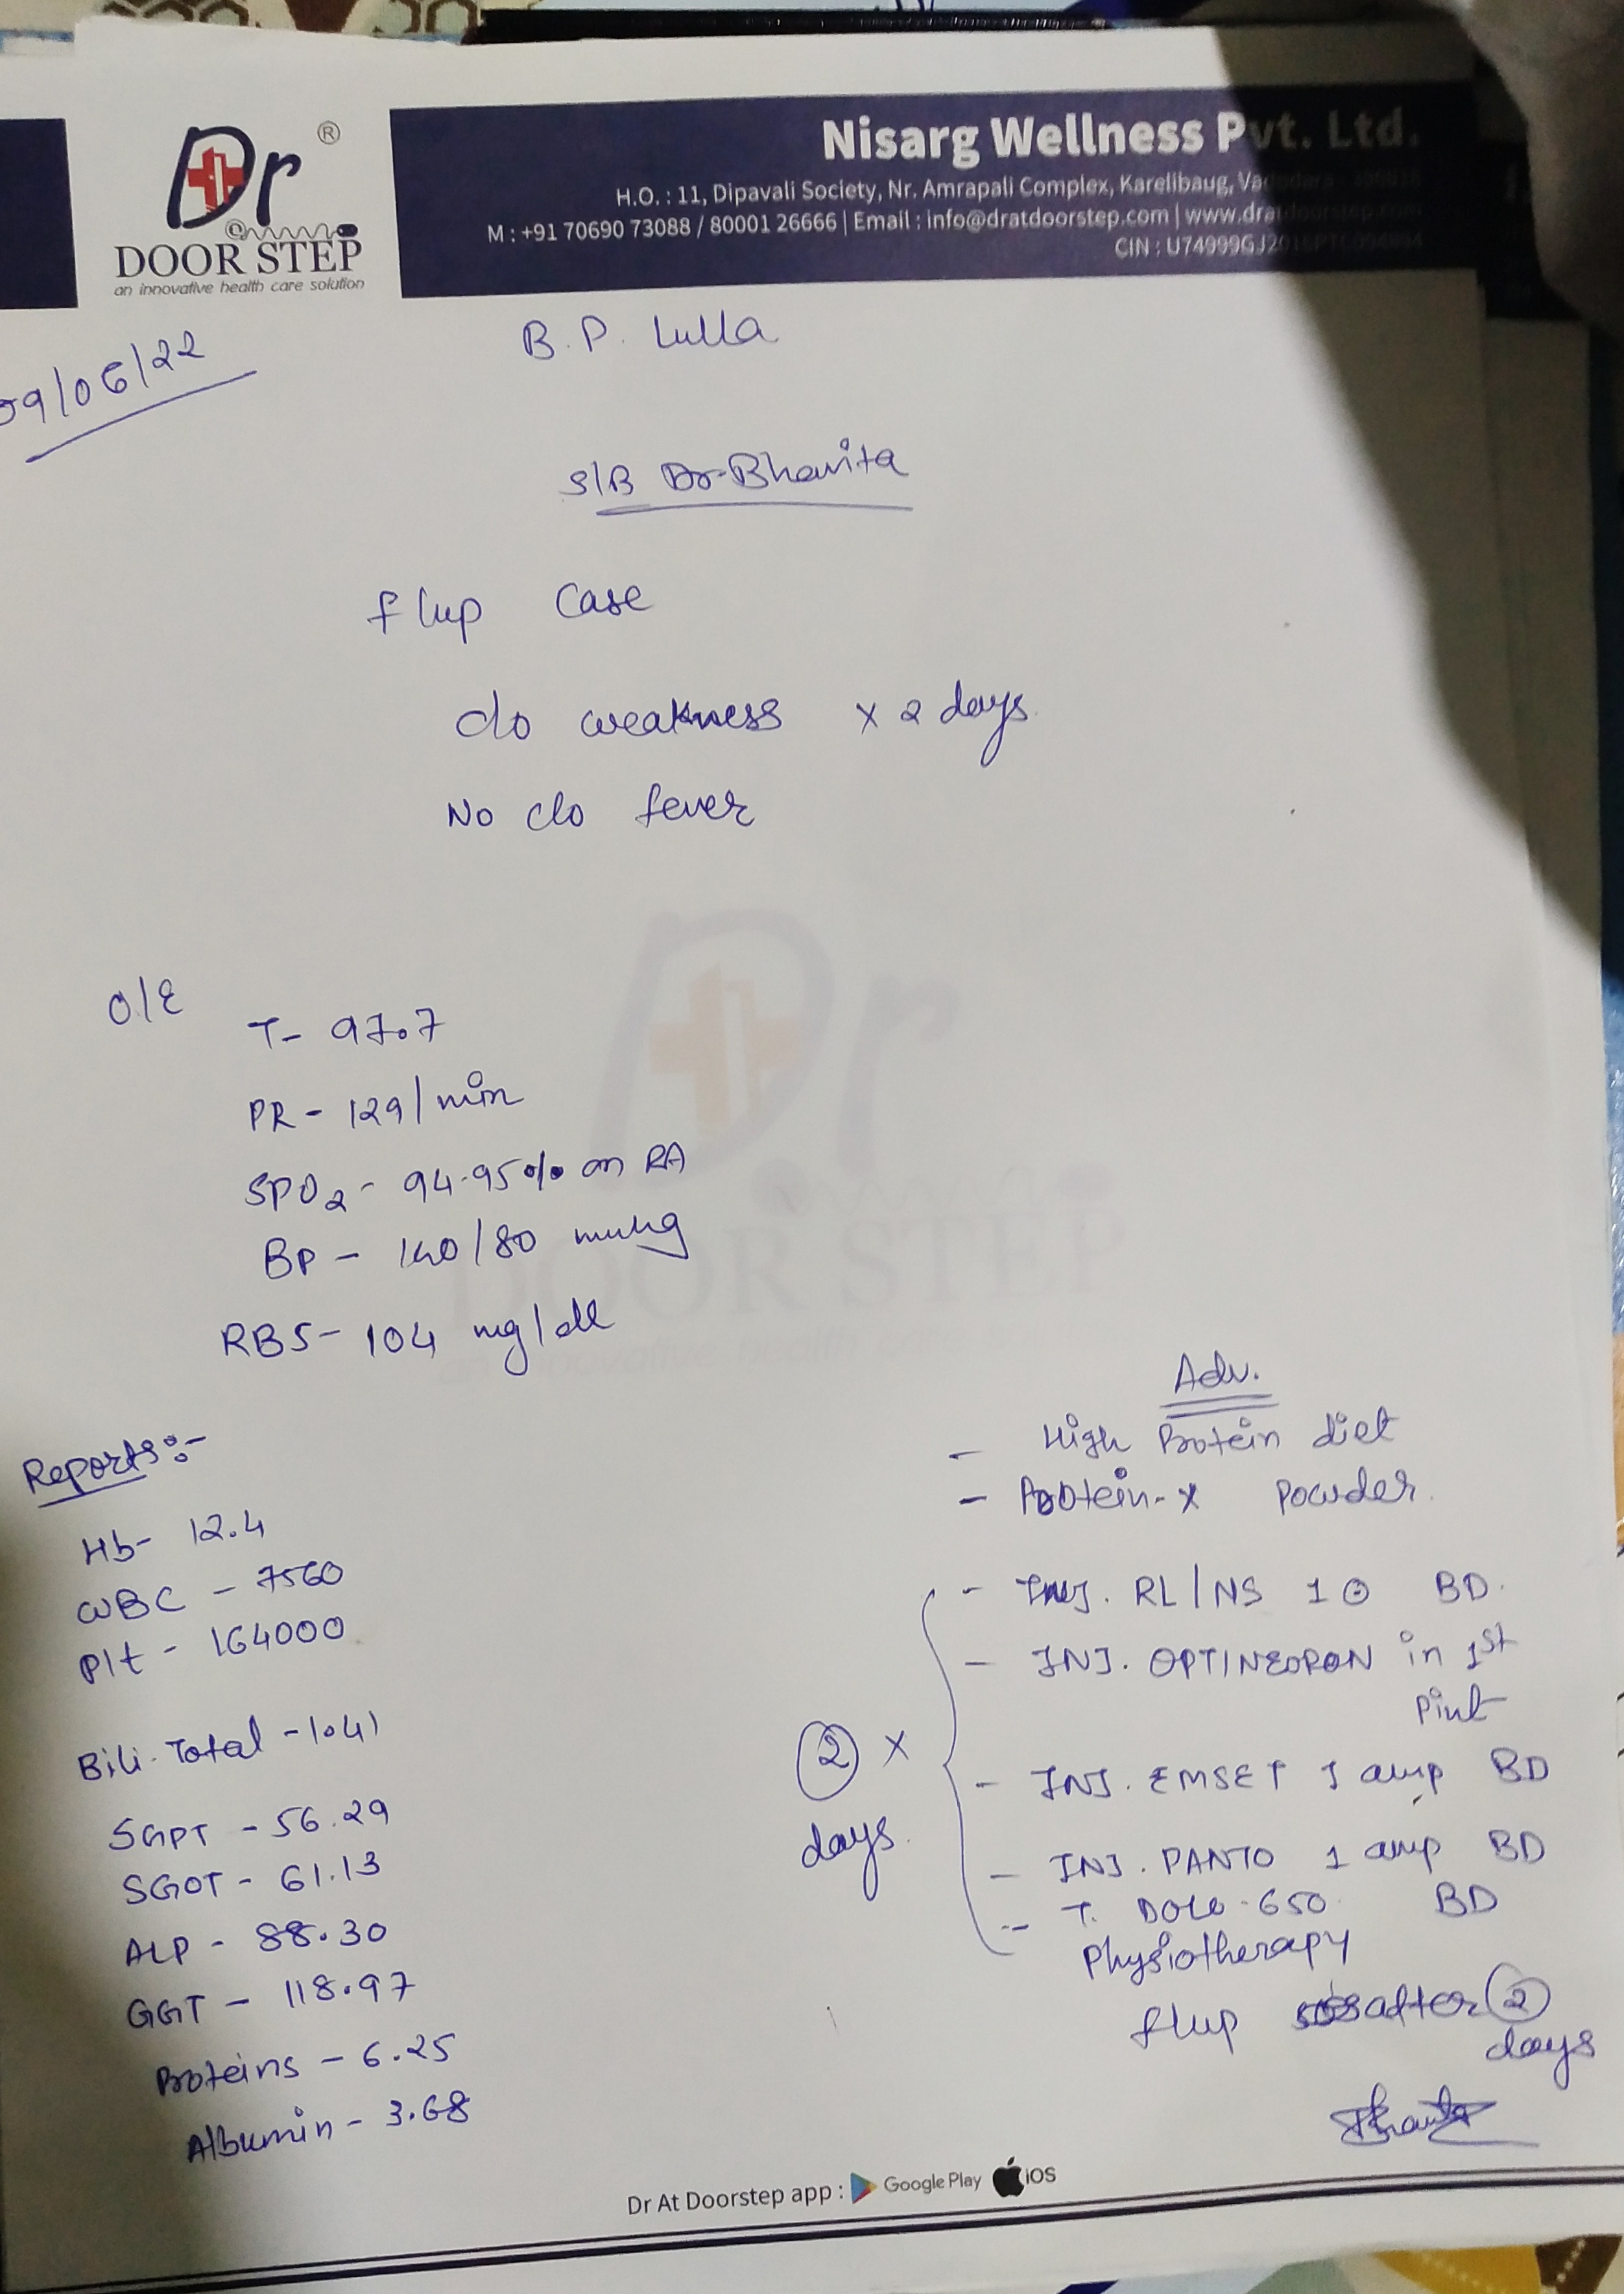 Dr ®
@
DOOR STEP
an innovative health care solution
Nisarg Wellness Pvt. Ltd.
H.O. : 11, Dipavali Society, Nr. Amrapali Complex, Karelibaug,
M : +91 70690 73088 / 80001 26666 | Email : info@dratdoorstep.com | www.dratdoorstep.com
CIN : U74999GJ
09/06/22
B. P. Lulla
S/B Dr. Bhavita
f/up case
c/o weakness x 2 days
No c/o fever
O/E
T- 97.7
PR - 129/min
SPO2 - 94-95% on RA
BP - 140/80 mmhg
RBS - 104 mg/dl
Reports:-
Hb- 12.4
WBC - 7560
Plt - 164000
Bili. Total - 1.41
SGPT - 56.29
SGOT - 61.13
ALP - 88.30
GGT - 118.97
Proteins - 6.25
Albumin - 3.68
Adv.
- High Protein diet
- Protein-X Powder.
- Inj. RL/NS 1 BD.
- INJ. OPTINEORON in 1st
Pint
- INJ. EMSET 1 amp BD
- INJ. PANTO 1 amp BD
- T. DOLO-650 BD
2 x
days.
Physiotherapy
f/up after 2
days
Dr At Doorstep app : Google Play iOS